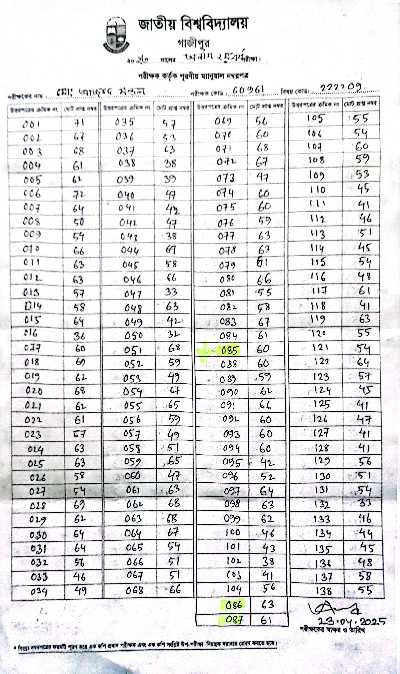 জাতীয় বিশ্ববিদ্যালয়
গাজীপুর
পরীক্ষক কর্তৃক পূরণীয় ম্যানুয়াল নম্বরপত্র
পরীক্ষকের নাম পরীক্ষক কোড 60961 বিষয় কোড: 222209
উত্তরপত্রের ক্রমিক নং মোট প্রাপ্ত নম্বর উত্তরপত্রের ক্রমিক নং মোট প্রাপ্ত নম্বর উত্তরপত্রের ক্রমিক নং মোট প্রাপ্ত নম্বর উত্তরপত্রের ক্রমিক নং মোট প্রাপ্ত নম্বর
001 71 035 57 069 56 105 55
002 67 036 53 070 60 106 54
003 68 037 63 071 68 107 60
004 61 038 38 072 67 108 59
005 62 039 39 073 47 109 53
006 72 040 47 074 60 110 45
007 64 041 42 075 60 111 41
008 50 042 47 076 59 112 46
009 54 043 38 077 63 113 51
010 66 044 67 078 63 114 45
011 63 045 58 079 61 115 54
012 63 046 66 080 66 116 48
013 57 047 33 081 55 117 61
014 58 048 63 082 58 118 41
015 64 049 42 083 67 119 63
016 36 050 32 084 61 120 55
017 60 051 68 085 60 121 54
018 69 052 59 088 60 122 64
019 62 053 49 089 59 123 57
020 68 054 67 090 62 124 45
021 62 055 65 091 66 125 41
022 61 056 59 092 60 126 47
023 57 057 49 093 60 127 41
024 63 058 51 094 60 128 41
025 63 059 65 095 42 129 56
026 58 060 47 096 52 130 51
027 54 061 63 097 64 131 54
028 69 062 68 098 63 132 33
029 62 063 68 099 62 133 46
030 64 064 67 100 46 134 44
031 64 065 54 101 43 135 45
032 56 066 51 102 38 136 48
033 46 067 51 103 41 137 58
034 49 068 66 104 56 138 55
086 63
087 61
23.04.2025
পরীক্ষকের স্বাক্ষর ও তারিখ